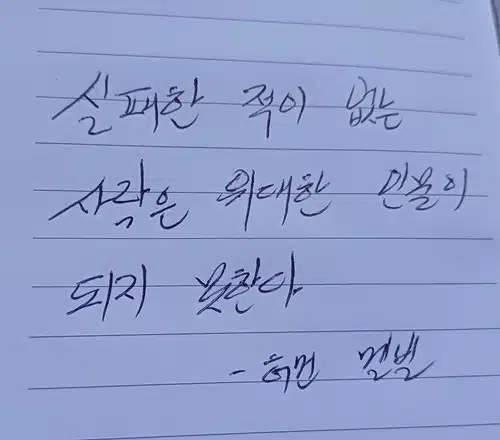 실패한 적이 없는
사람은 위대한 인물이
되지 못한다
- 허먼 멜빌